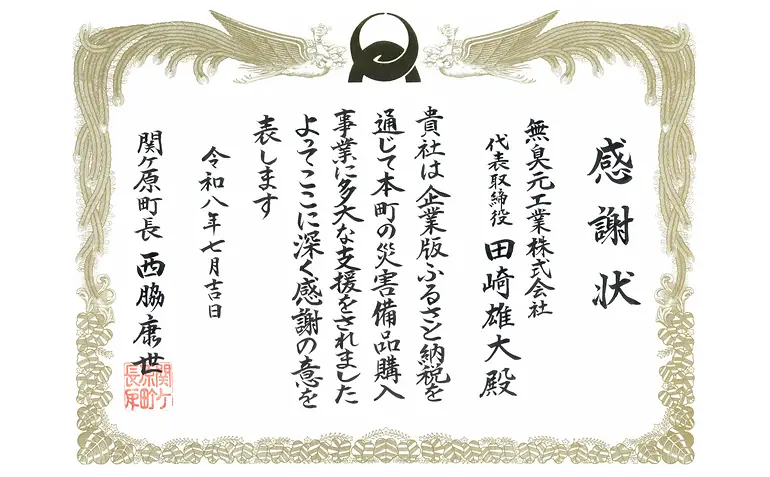 感謝状
無臭元工業株式会社
代表取締役 田崎雄大殿
貴社は企業版ふるさと納税を
通じて本町の災害備品購入
事業に多大な支援をされました
よってここに深く感謝の意を
表します
令和八年七月吉日
関ケ原町長 西脇康世
関ケ原町長印